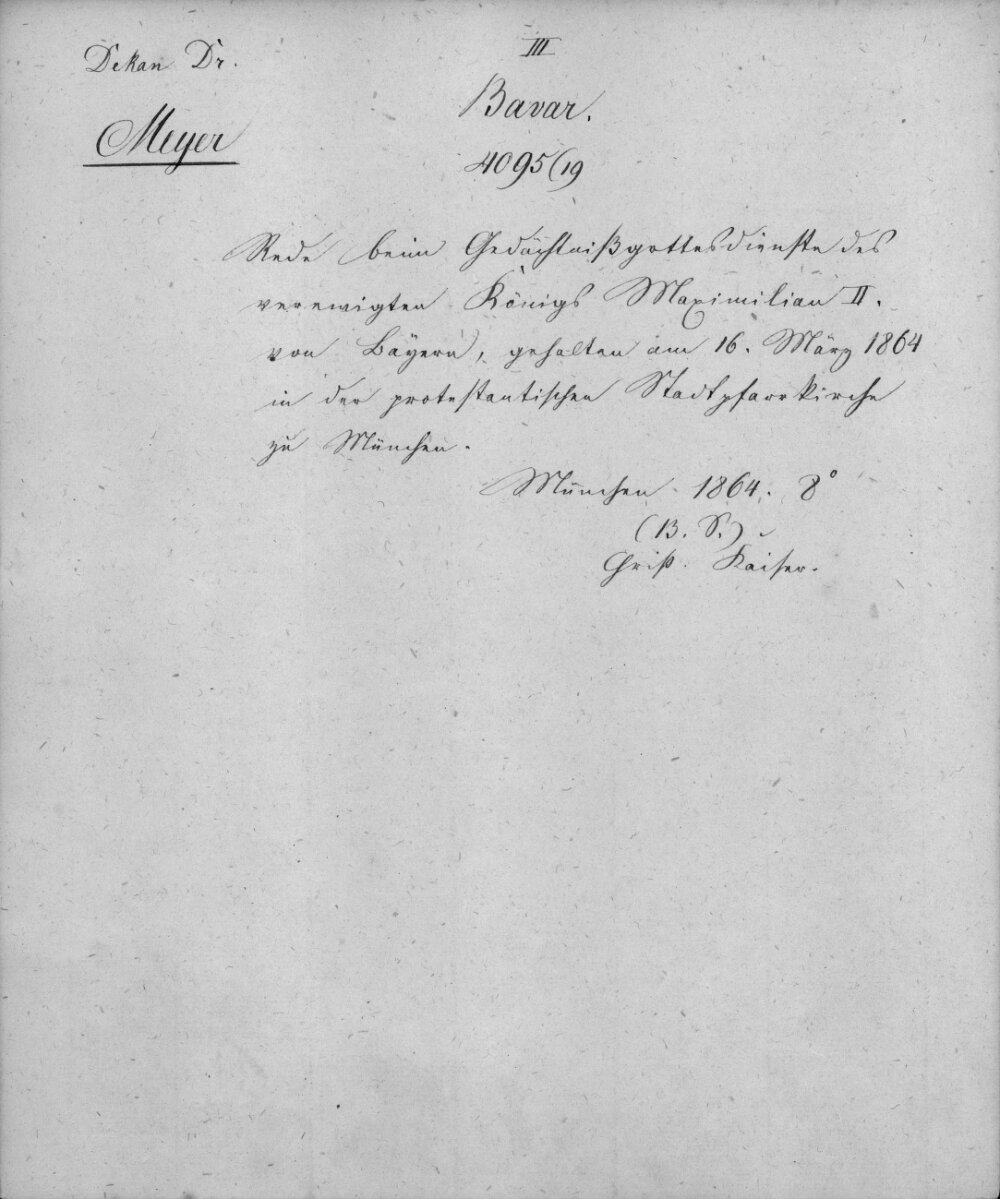 Dekan Dr.
Meyer
III
Bavar.
4095(19
Rede beim Gedächtnißgottesdienste des
verewigten Königs Maximilian II.
von Bayern, gehalten am 16. März 1864
in der protestantischen Stadtpfarrkirche
zu München.
München. 1864. 8°
(B. S.)
Christ. Kaiser.